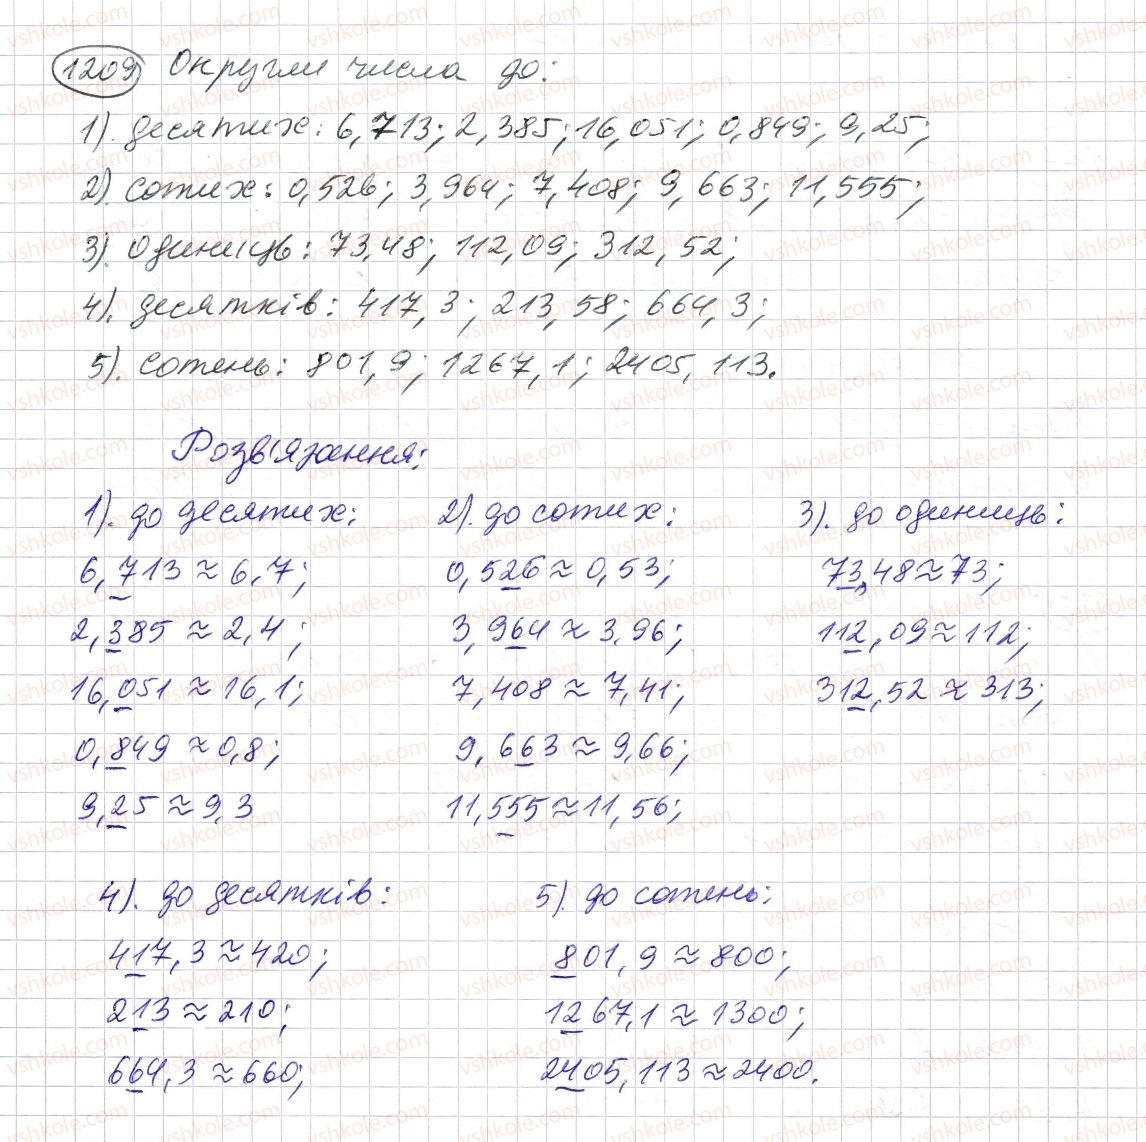 1209 Округли числа до:
1). десятих: 6,713; 2,385; 16,051; 0,849; 9,25;
2). сотих: 0,526; 3,964; 7,408; 9,663; 11,555;
3). одиниць: 73,48; 112,09; 312,52;
4). десятків: 417,3; 213,58; 664,3;
5). сотень: 801,9; 1267,1; 2405,113.
Розв'язання:
1). до десятих:
6,713 ≈ 6,7;
2,385 ≈ 2,4;
16,051 ≈ 16,1;
0,849 ≈ 0,8;
9,25 ≈ 9,3
2). до сотих:
0,526 ≈ 0,53;
3,964 ≈ 3,96;
7,408 ≈ 7,41;
9,663 ≈ 9,66;
11,555 ≈ 11,56;
3). до одиниць:
73,48 ≈ 73;
112,09 ≈ 112;
312,52 ≈ 313;
4). до десятків:
417,3 ≈ 420;
213 ≈ 210;
664,3 ≈ 660;
5). до сотень:
801,9 ≈ 800;
1267,1 ≈ 1300;
2405,113 ≈ 2400.
vshkole.com